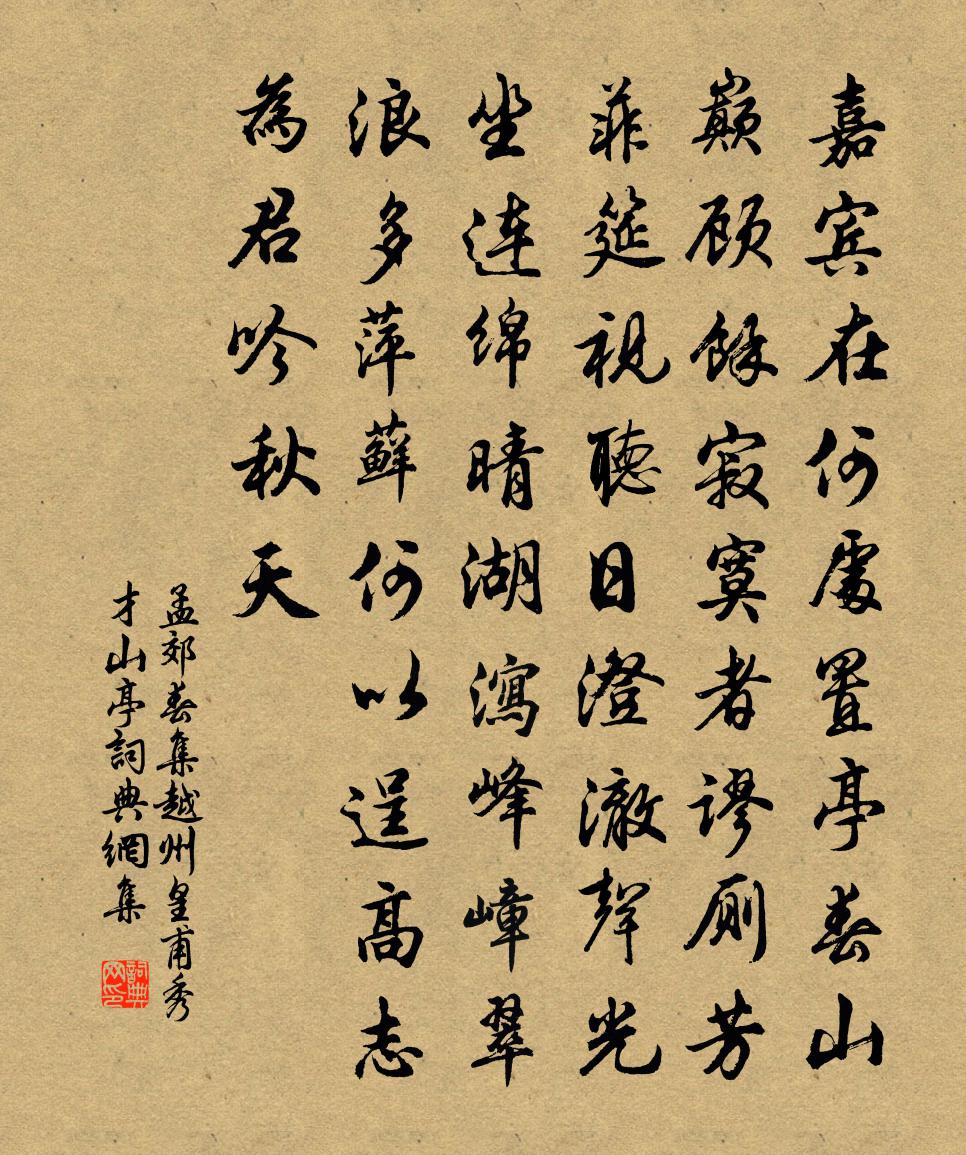 嘉宾在何處置亭春山
巅顾餘寂寞者谬厠芳
菲筵視聽日澄澈聲光
坐连绵晴湖瀉峰嶂翠
浪多萍蘚何以逞高志
為君吟秋天
孟郊春集越州皇甫秀
才山亭詞典網集
詞典网印